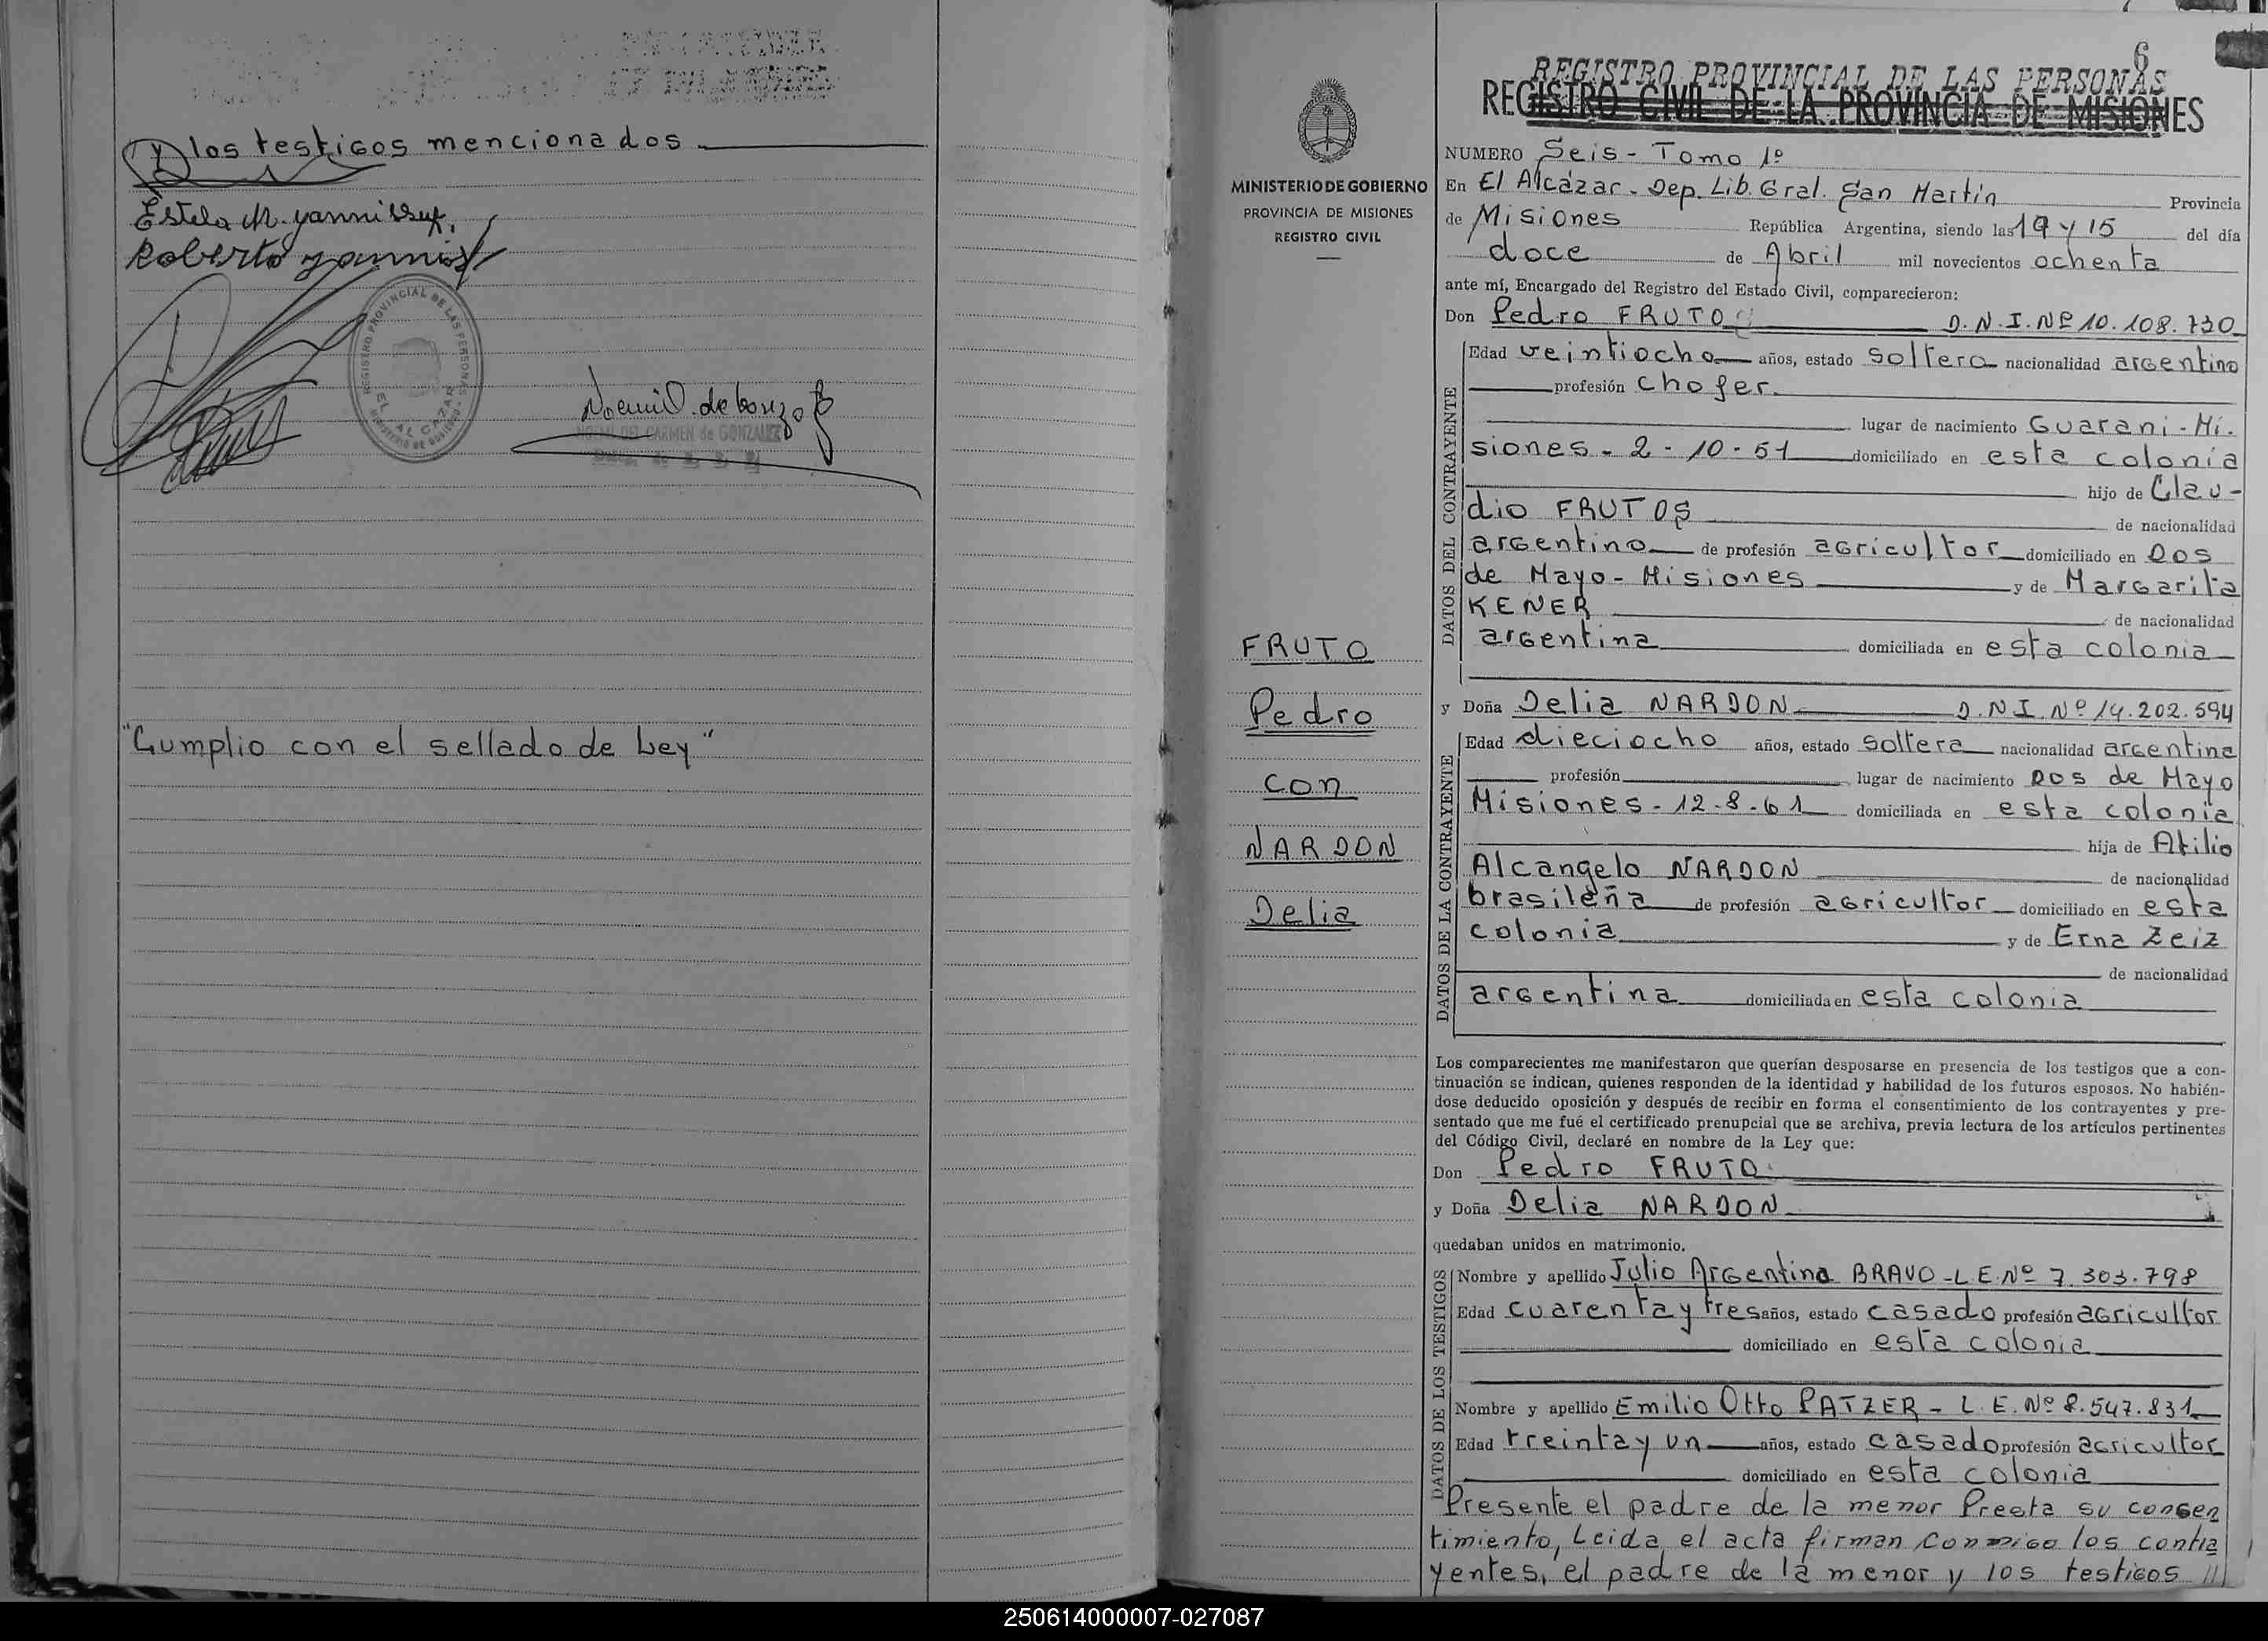 y los testigos mencionados
Estela M. Yanni
Roberto Yanni
REGISTRO PROVINCIAL DE LAS PERSONAS
EL ALCAZAR
MINISTERIO DE GOBIERNO
Noemi D. de Gonzalez
NOEMI DEL CARMEN de GONZALEZ
"Cumplio con el sellado de Ley"
6
REGISTRO PROVINCIAL DE LAS PERSONAS
REGISTRO CIVIL DE LA PROVINCIA DE MISIONES
MINISTERIO DE GOBIERNO
PROVINCIA DE MISIONES
REGISTRO CIVIL
FRUTO
Pedro
con
NARDON
Delia
NUMERO Seis - Tomo 1º
En El Alcázar - Dep. Lib. Gral. San Martín Provincia
de Misiones República Argentina, siendo las 19 y 15 del día
doce de Abril mil novecientos ochenta
ante mí, Encargado del Registro del Estado Civil, comparecieron:
Don Pedro FRUTO D.N.I. Nº 10.108.730
DATOS DEL CONTRAYENTE
Edad veintiocho años, estado soltero nacionalidad argentino
profesión chofer.
lugar de nacimiento Guarani - Mi-
siones - 2 - 10 - 51 domiciliado en esta colonia
hijo de Clau-
dio FRUTOS
de nacionalidad
argentino de profesión agricultor domiciliado en Dos
de Mayo - Misiones y de Margarita
KENER
de nacionalidad
argentina domiciliada en esta colonia
y Doña Delia NARDON D.N.I. Nº 14.202.594
DATOS DE LA CONTRAYENTE
Edad dieciocho años, estado soltera nacionalidad argentina
profesión lugar de nacimiento Dos de Mayo
Misiones - 12 - 8 - 61 domiciliada en esta colonia
hija de Atilio
Alcangelo NARDON
de nacionalidad
brasileña de profesión agricultor domiciliado en esta
colonia y de Erna Zeiz
de nacionalidad
argentina domiciliada en esta colonia
Los comparecientes me manifestaron que querían desposarse en presencia de los testigos que a con-
tinuación se indican, quienes responden de la identidad y habilidad de los futuros esposos. No habién-
dose deducido oposición y después de recibir en forma el consentimiento de los contrayentes y pre-
sentado que me fué el certificado prenupcial que se archiva, previa lectura de los artículos pertinentes
del Código Civil, declaré en nombre de la Ley que:
Don Pedro FRUTO
y Doña Delia NARDON
quedaban unidos en matrimonio.
DATOS DE LOS TESTIGOS
Nombre y apellido Julio Argentino BRAVO - L.E. Nº 7.303.798
Edad cuarenta y tres años, estado casado profesión agricultor
domiciliado en esta colonia
Nombre y apellido Emilio Otto PATZER - L.E. Nº 8.547.831
Edad treinta y un años, estado casado profesión agricultor
domiciliado en esta colonia
Presente el padre de la menor Presta su consen
timiento, Leida el acta firman conmigo los contra
yentes, el padre de la menor y los testigos //
250614000007-027087